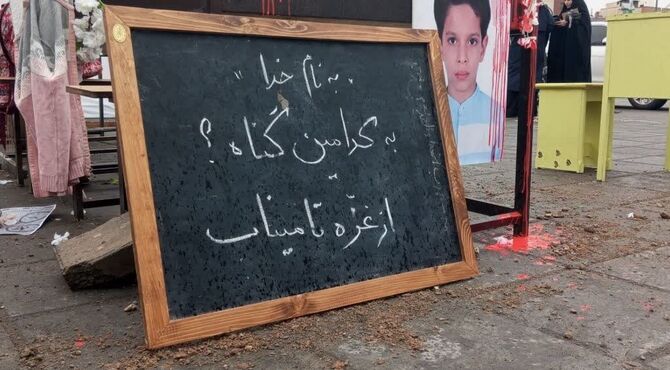 "به نام خدا"
به کدامین گناه؟
از غزّه تا میناب